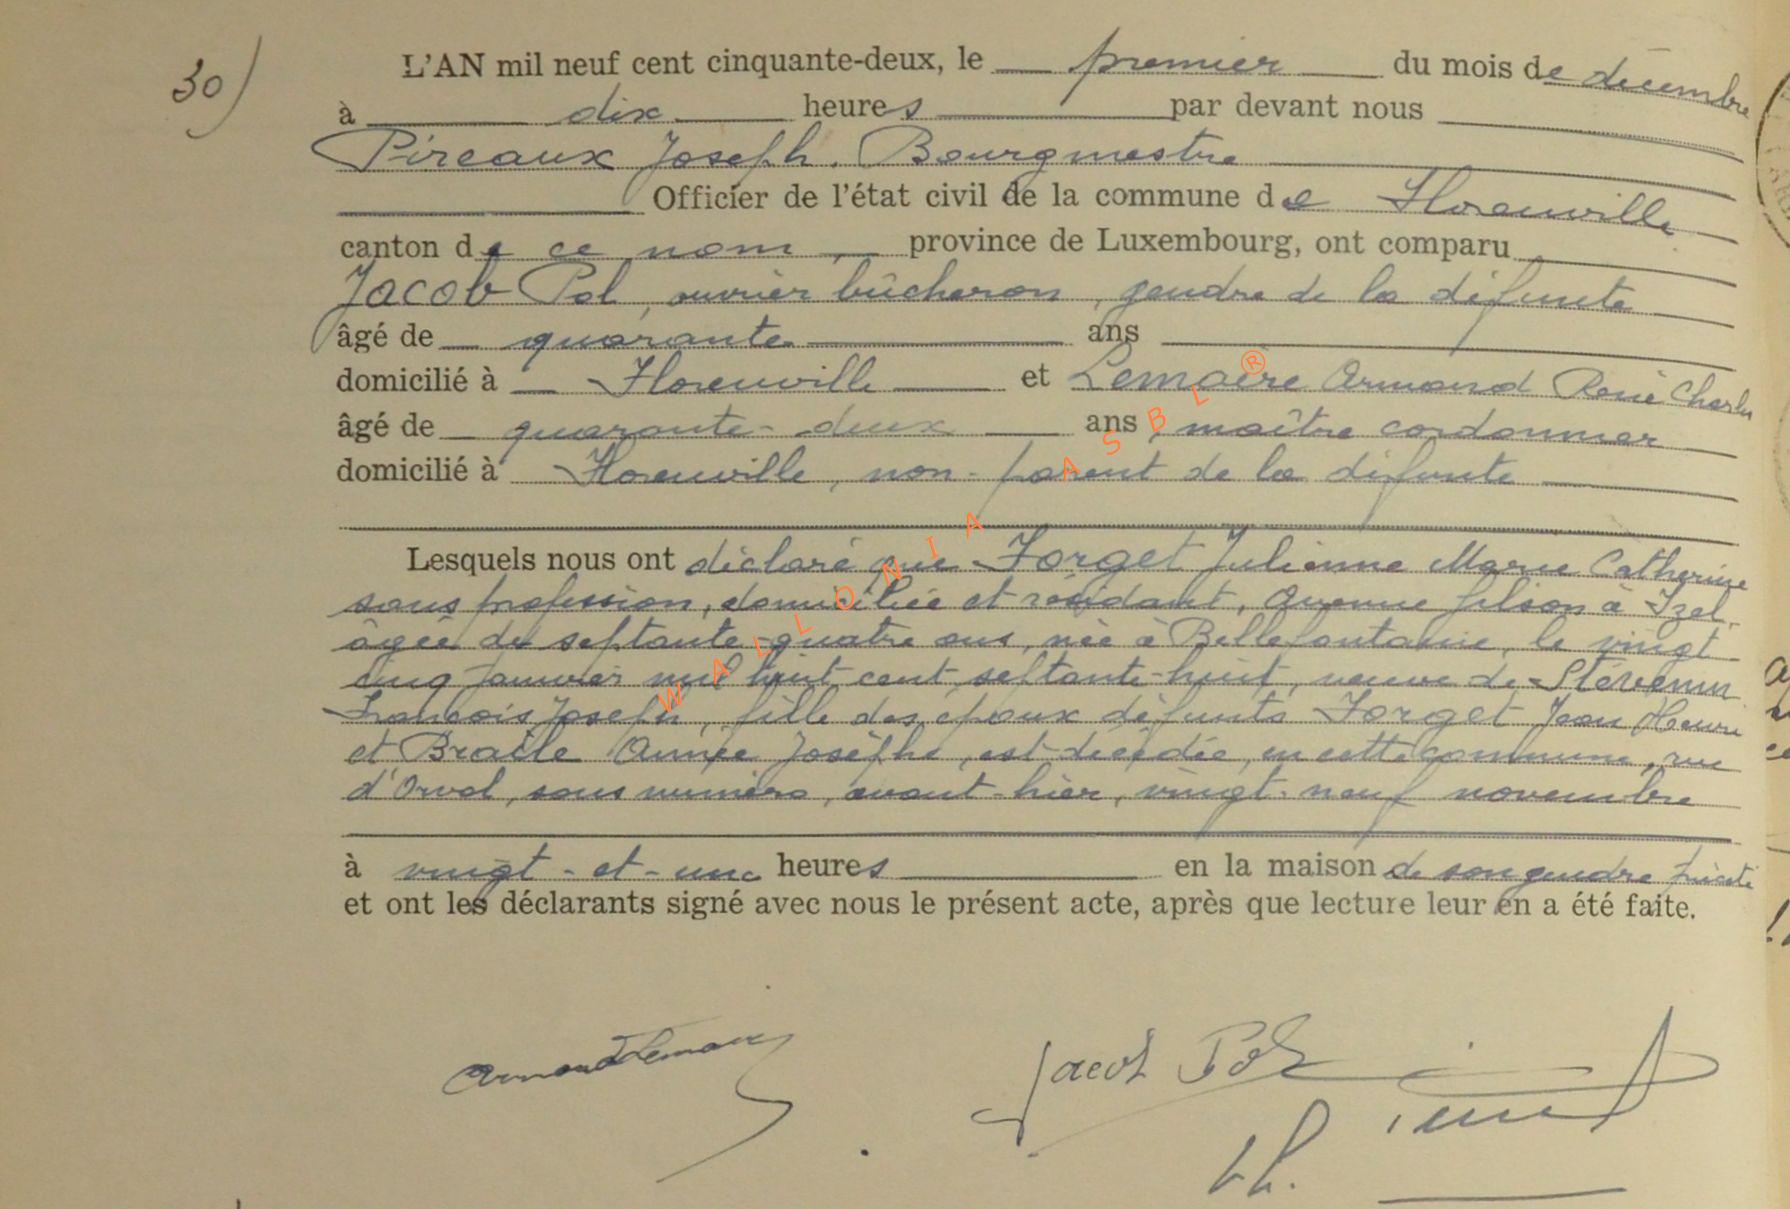 30)
L'AN mil neuf cent cinquante-deux, le premier du mois de décembre
à dix heures par devant nous
Pireaux Joseph. Bourgmestre
Officier de l'état civil de la commune de Florenville
canton de ce nom, province de Luxembourg, ont comparu
Jacob Pol, ouvrier bûcheron, gendre de la défunte
âgé de quarante ans
domicilié à Florenville et Lemaire Armand René Charles
âgé de quarante-deux ans, maître cordonnier
domicilié à Florenville, non-parent de la défunte
Lesquels nous ont déclaré que Forget Julienne Marie Catherine
sans profession, domiciliée et résidant, à Izel,
âgée de septante-quatre ans, née à Bellefontaine, le vingt
cinq Janvier mil huit cent septante-huit, veuve de Stévenin
François Joseph, fille des époux défunts Forget Jean Henri
et Braille Année Josèphe, est décédée, en cette commune, rue
d'Orval, sans numéro, avant-hier, vingt-neuf novembre
à vingt-et-une heures en la maison de son gendre précité
et ont les déclarants signé avec nous le présent acte, après que lecture leur en a été faite.
Armand Lemaire
Jacob Pol
WALLONIA ASBL ®